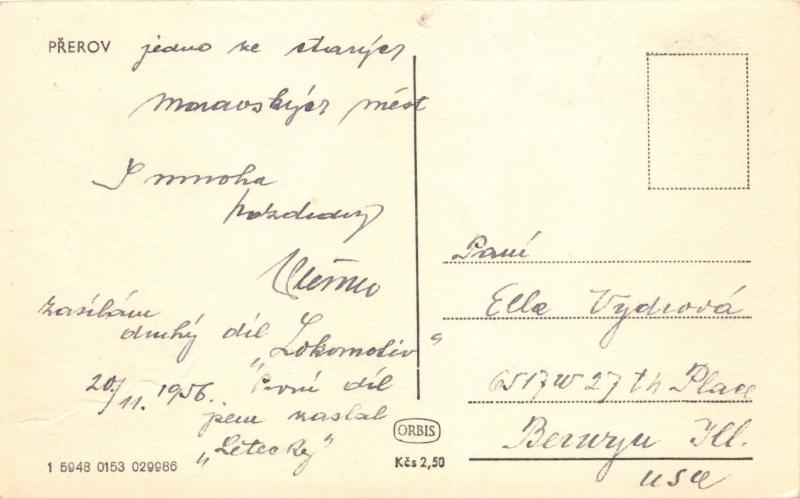 PŘEROV jedno ze starých
Moravských měst
S mnoha
pozdravy
zasílám
druhý díl
„Lokomotiv“
20/11. 1956. První díl
jsem zaslal
„Letecky“
1 5948 0153 029986
ORBIS
Kčs 2,50
Paní
Ella Vydrová
6517 W 27 th Place
Berwyn Ill.
USA